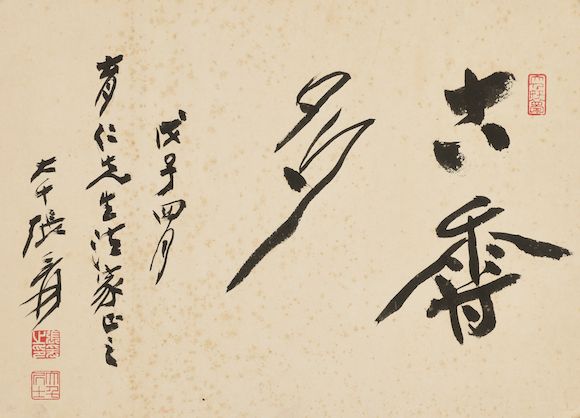 古香
多
戊子四月
仁先生法家正之
大千張爰
張爰之印